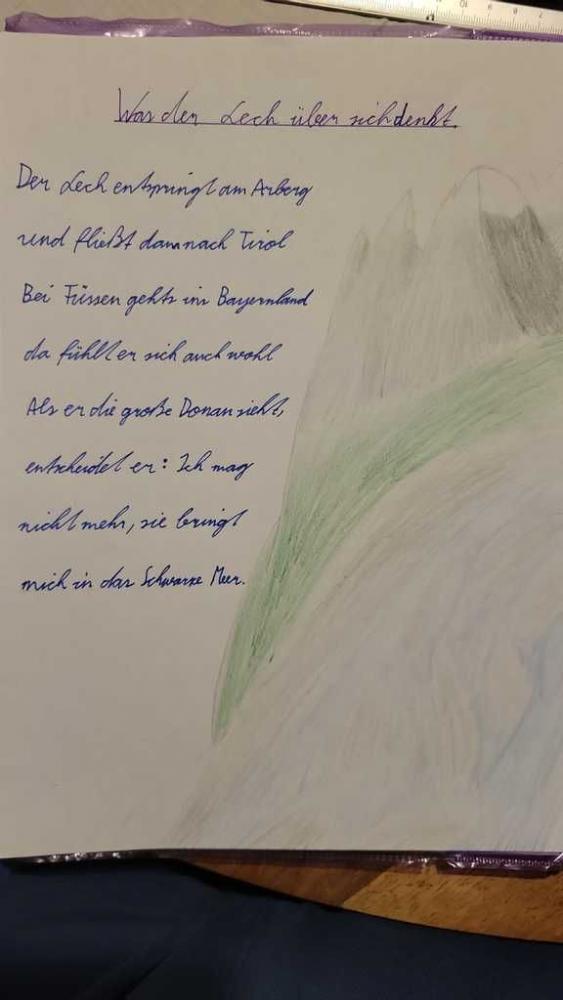 Was der Lech über sich denkt
Der Lech entspringt am Arberg
und fließt dann nach Tirol
Bei Füssen gehts ins Bayernland
da fühlt er sich auch wohl
Als er die große Donau sieht,
entscheidet er: Ich mag
nicht mehr, sie bringt
mich in das Schwarze Meer.